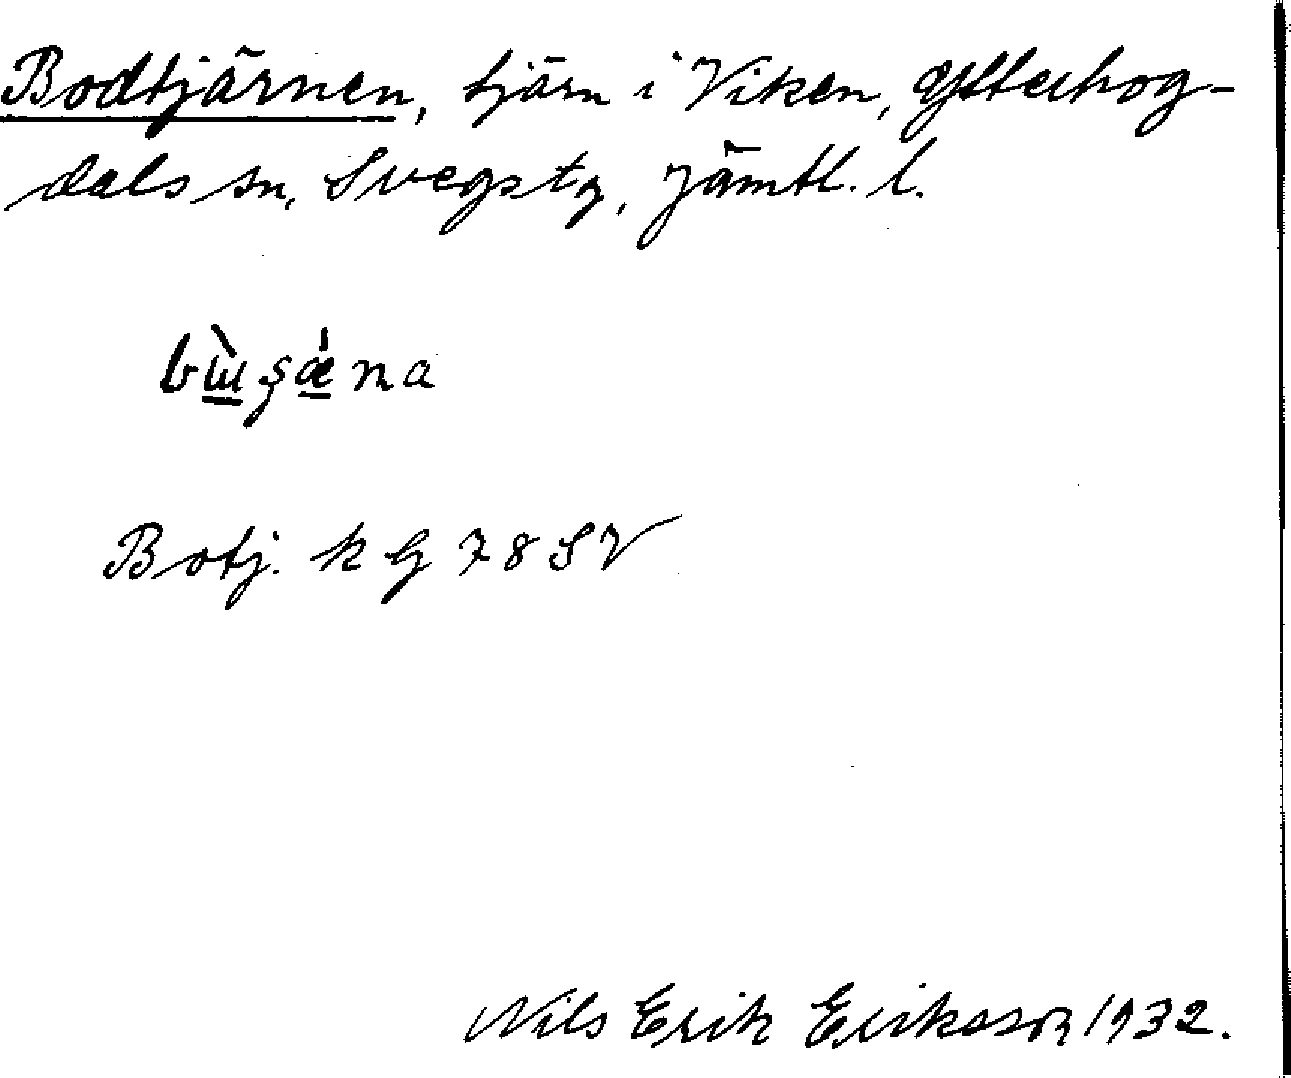 Bodtjärnen, tjärn i Viken, Ytterhog-
dals sn, Svegs tg, Jämtl. l.
bɯ̀şǽna
Botj. k G 78 SV
Nils Erik Eriksson 1932.